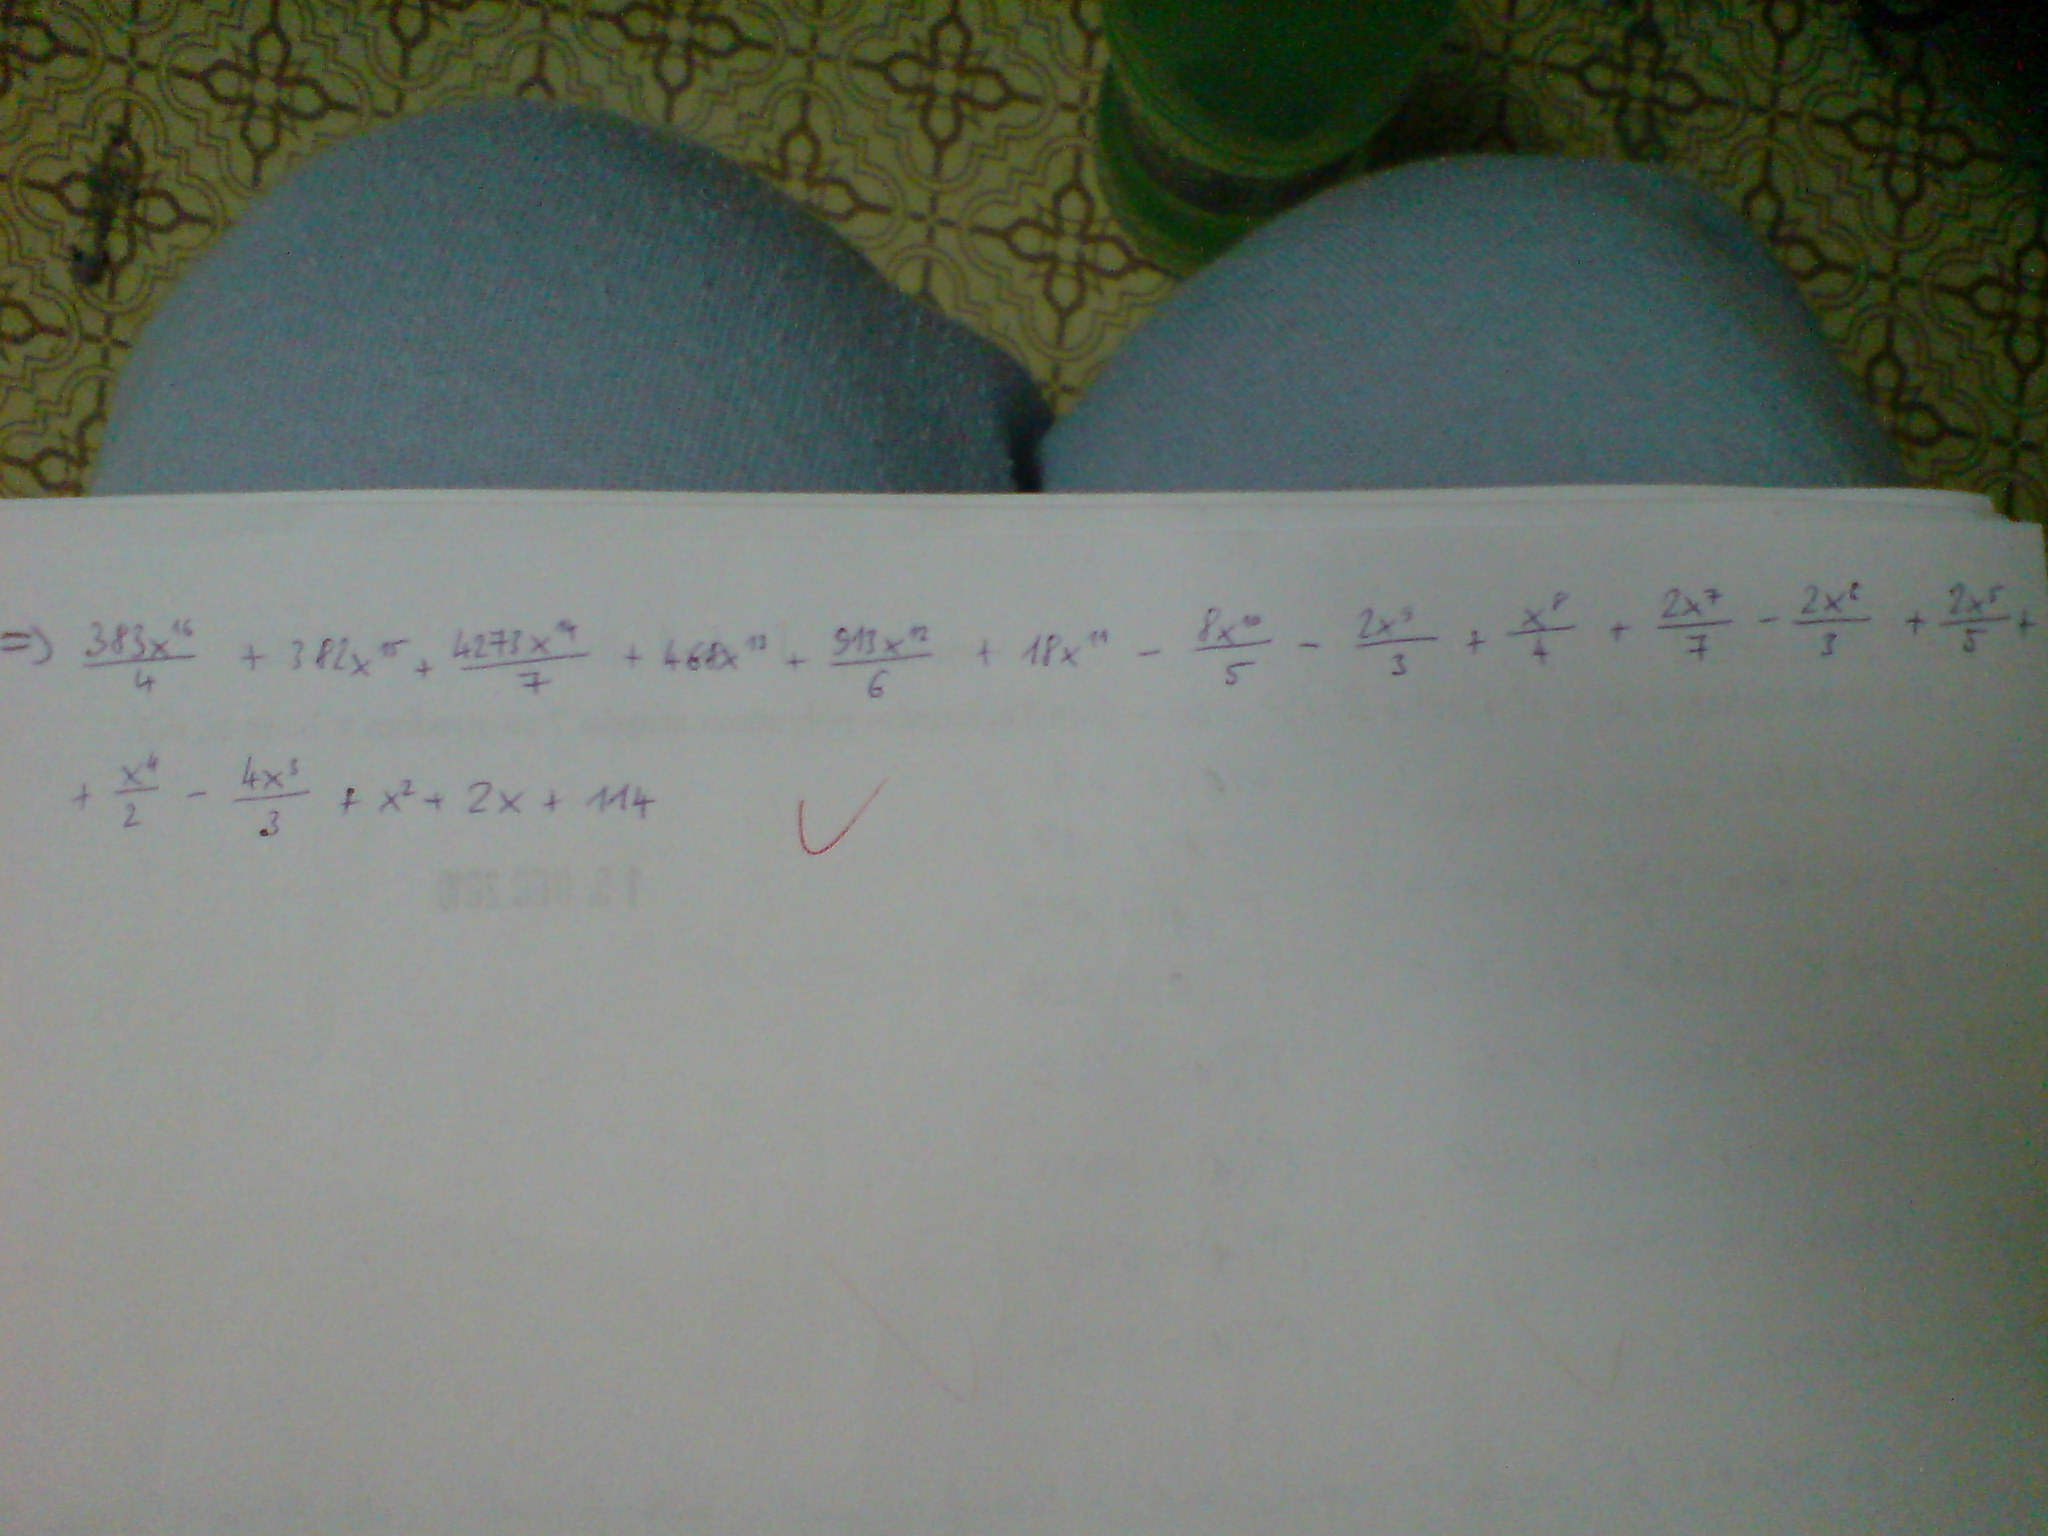 => 383x¹⁶/4 + 382x¹⁵ + 4273x¹⁴/7 + 468x¹³ + 913x¹²/6 + 18x¹¹ - 8x¹⁰/5 - 2x⁹/3 + x⁸/4 + 2x⁷/7 - 2x⁶/3 + 2x⁵/5 +
+ x⁴/2 - 4x³/3 + x² + 2x + 114